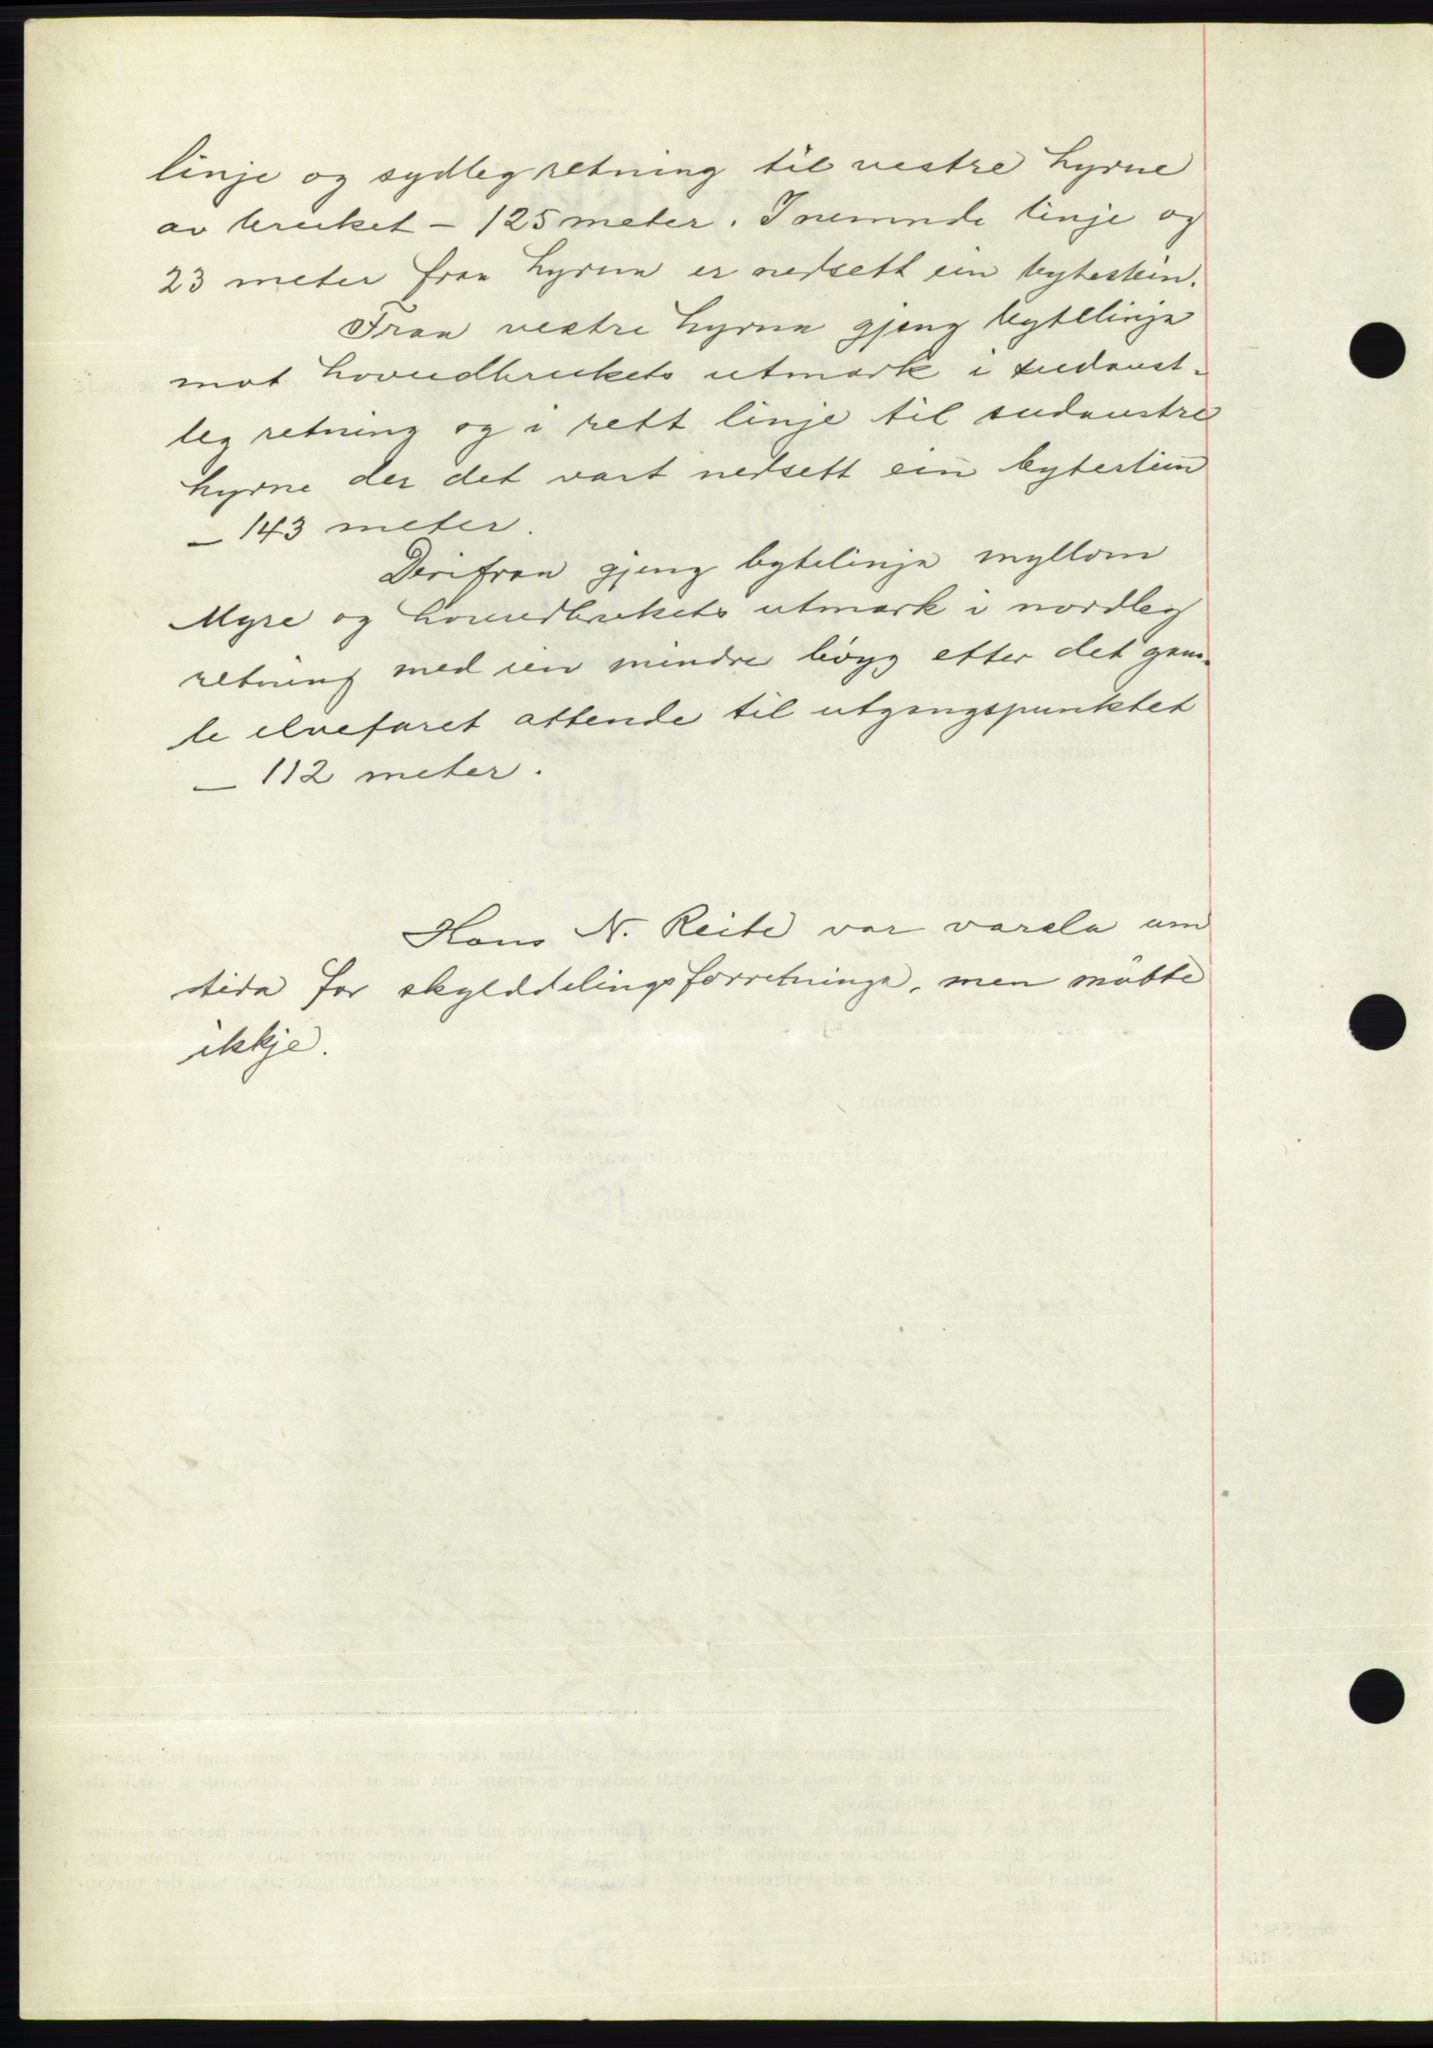 linje og sydleg retning til vestre hyrne
av bruket – 125 meter. I nemnde linje og
23 meter fraa hyrna er nedsett ein bytestein.
Fraa vestre hyrna gjeng bytelinja
mot hovudbrukets utmark i sudaust-
leg retning og i rett linje til sudaustre
hyrne der det vart nedsett ein bytestein
– 143 meter.
Derifraa gjeng bytelinja myllom
Myre og hovudbrukets utmark i nordleg
retning med ein mindre bøyg etter det gam-
le elvefaret attende til utgangspunktet
– 112 meter.
Hans N. Reite var varsla um
tida for skylddelingsforretninga, men møtte
ikkje.